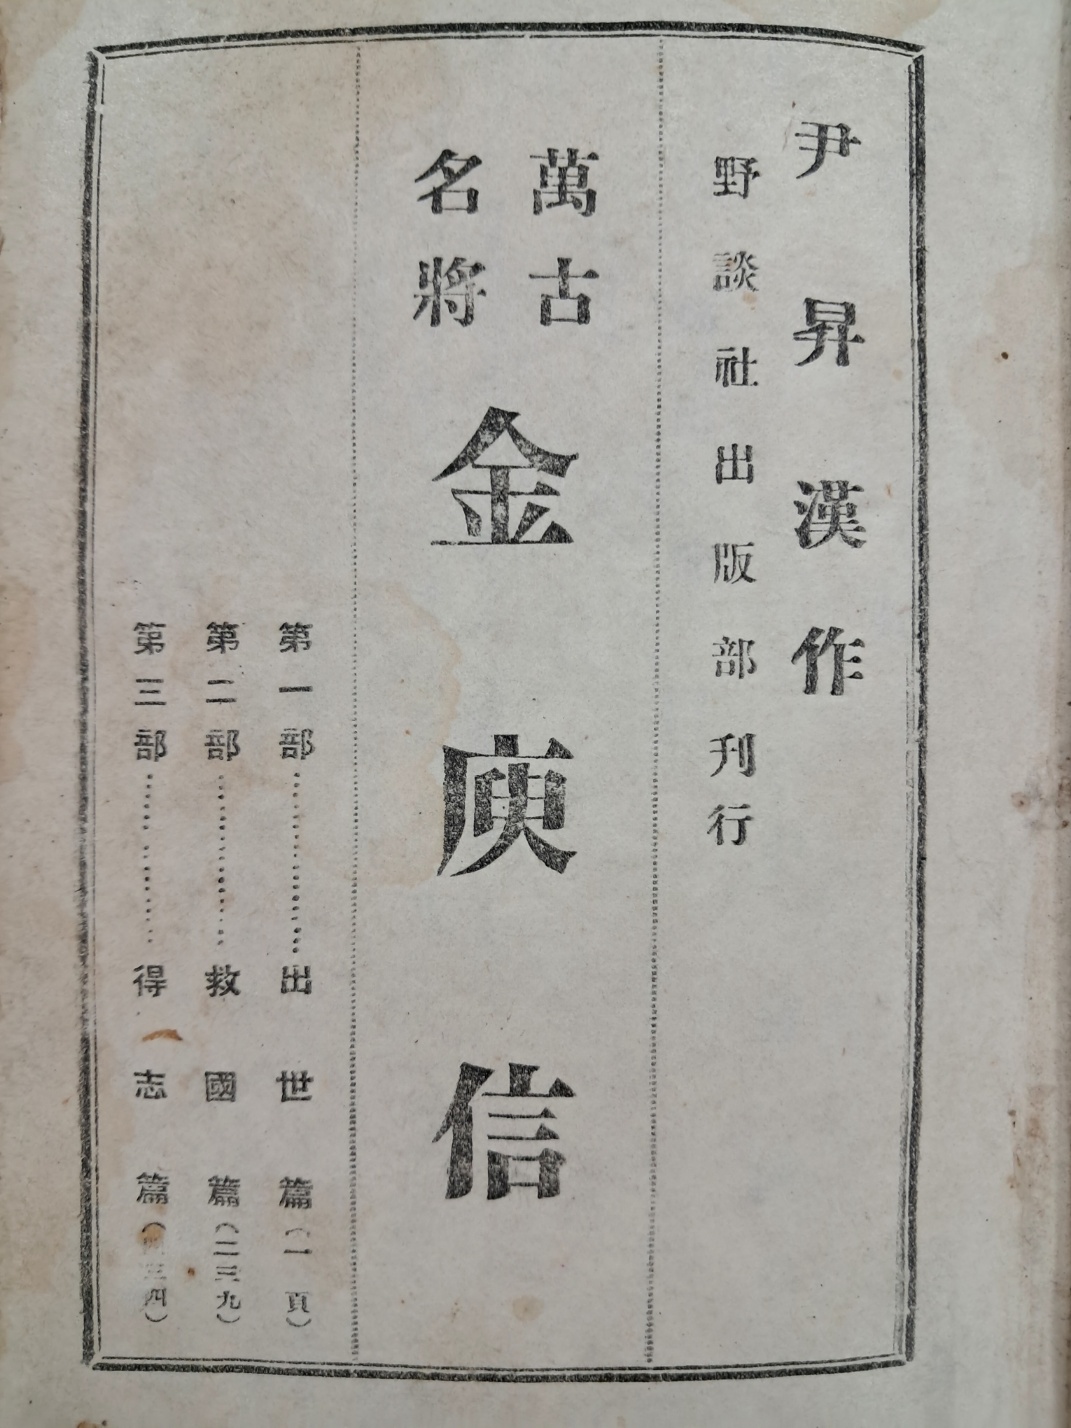 尹昇漢作
野談社出版部刊行
萬古
名將
金庾信
第一部…………出世篇(一頁)
第二部…………救國篇(二三九)
第三部…………得志篇(四三四)